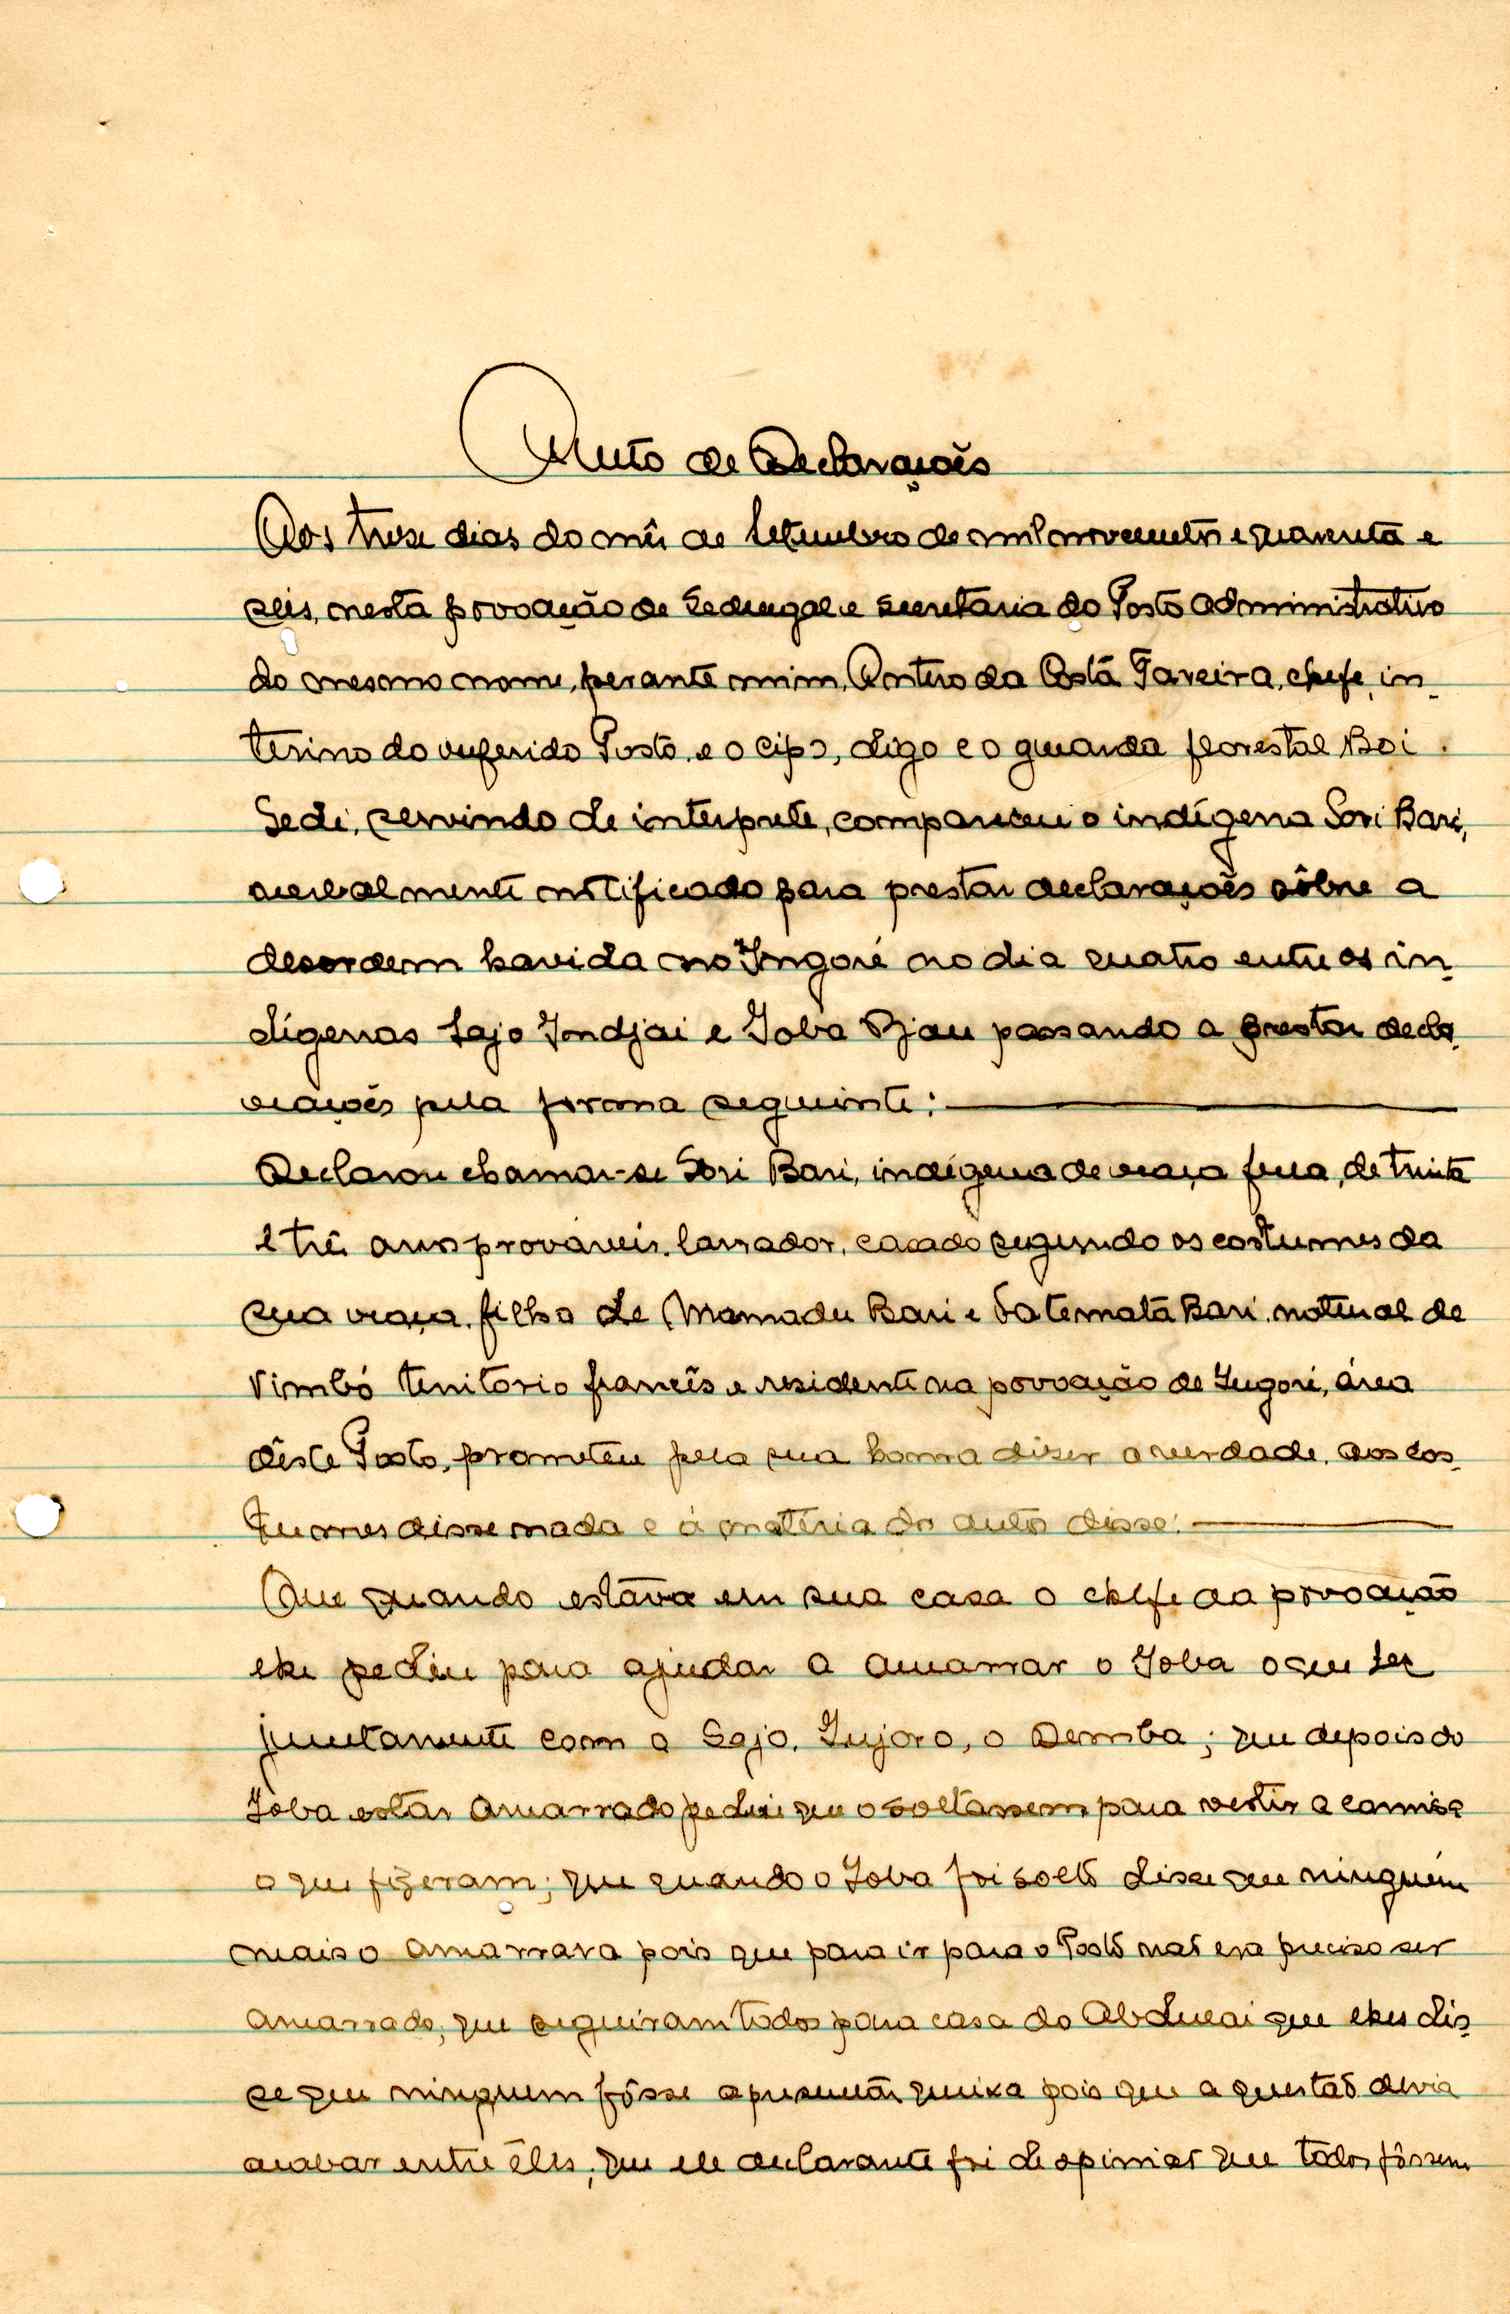 Auto de Declarações
Aos treze dias do mês de Setembro de mil novecentos e quarenta e
seis, nesta povoação de Sedengal e secretaria do Posto Administrativo
do mesmo nome, perante mim, Antero da Costa Taveira, chefe, in-
terino do referido Posto, e o cipo, digo e o guarda florestal Boi
Sedi, servindo de interprete, compareceu o indígena Sori Bari,
verbalmente notificado para prestar declarações sôbre a
desordem havida no Ingoré no dia quatro entre os in-
dígenas Sajo Indjai e Joba Djau passando a prestar decla-
rações pela forma seguinte:
Declarou chamar-se Sori Bari, indígena de raça fula, de trinta
e três anos prováveis, lavrador, casado segundo os costumes da
sua raça, filho de Mamadu Bari e Fatematá Bari, natural de
Vimbó territorio francês e residente na povoação de Ingoré, área
dêste Posto, prometeu pela sua honra dizer a verdade, aos cos-
tumes disse nada e à matéria do autos disse:
Que quando estava em sua casa o chefe da povoação
lhe pediu para ajudar a amarrar o Joba o que fez
juntamente com o Sajo, Injoro, o Demba; que depois do
Joba estar amarrado pediu que o soltassem para vestir a camisa
o que fizeram; que quando o Joba foi solto disse que ninguém
mais o amarrava pois que para ir para o Posto não era preciso ser
amarrado; que seguiram todos para casa do Abdulai que lhes dis-
se que ninguem fôsse apresentar queixa pois que a questão devia
acabar entre êles; que ele declarante foi de opinião que todos fôssem